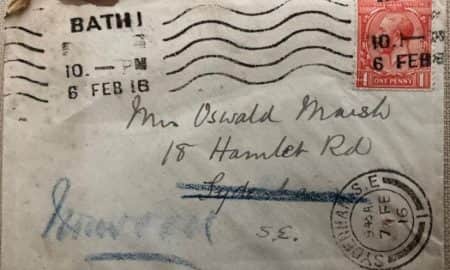 BATH
10. — PM
6 FEB 16
10. —
6 FEB
ONE PENNY
Mrs Oswald Marsh
18 Hamlet Rd
S.E.
SYDENHAM S.E
945AM
7 FE
16